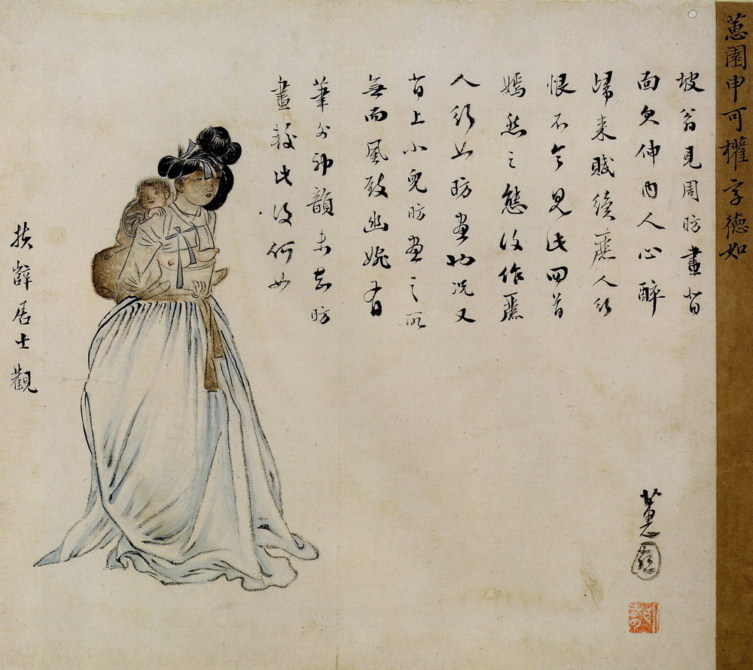 蕙園申可權字德如
坡翁見周昉畫背
面欠伸內人心醉
歸來賦續麗人行
恨不令見此回首
嫣然之態復作麗
人行如昉畫也况又
背上小兒昉畫之所
無而風致幽婉有
筆外神韻未知昉
畫較此復何如
扶辥居士觀
蕙園